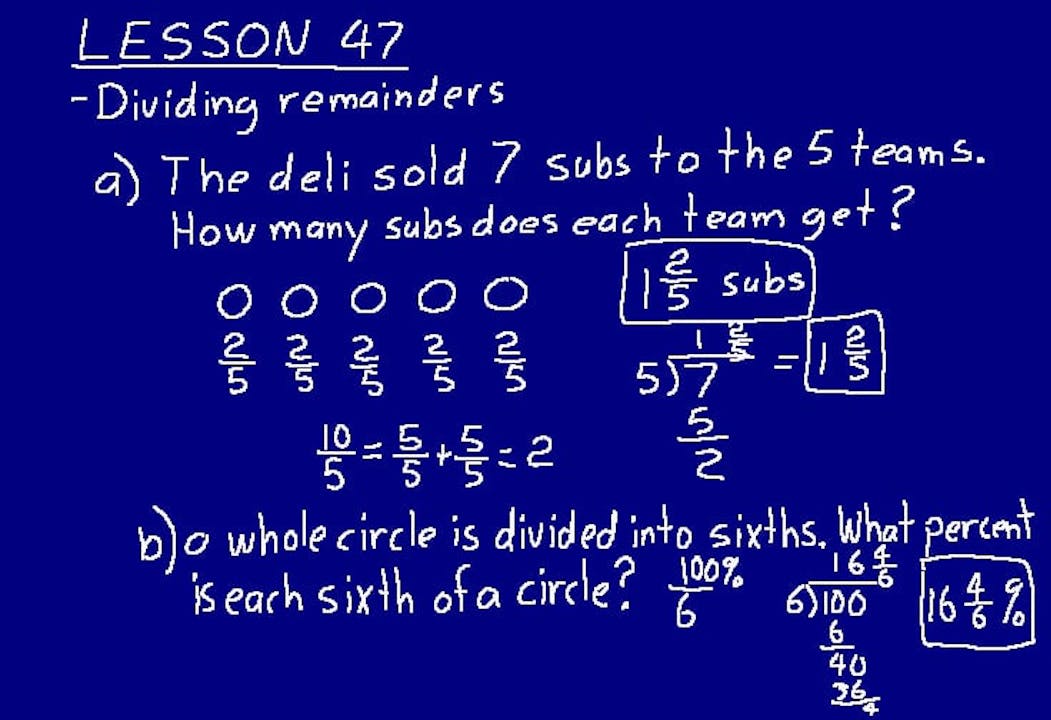 LESSON 47
- Dividing remainders
a) The deli sold 7 subs to the 5 teams.
How many subs does each team get?
1 2/5 subs
2/5 2/5 2/5 2/5 2/5
1 2/5
5)7 = 1 2/5
5
2
10/5 = 5/5 + 5/5 = 2
b) a whole circle is divided into sixths. What percent
is each sixth of a circle? 100%/6
16 4/6
6)100
6
40
36
4
16 4/6 %